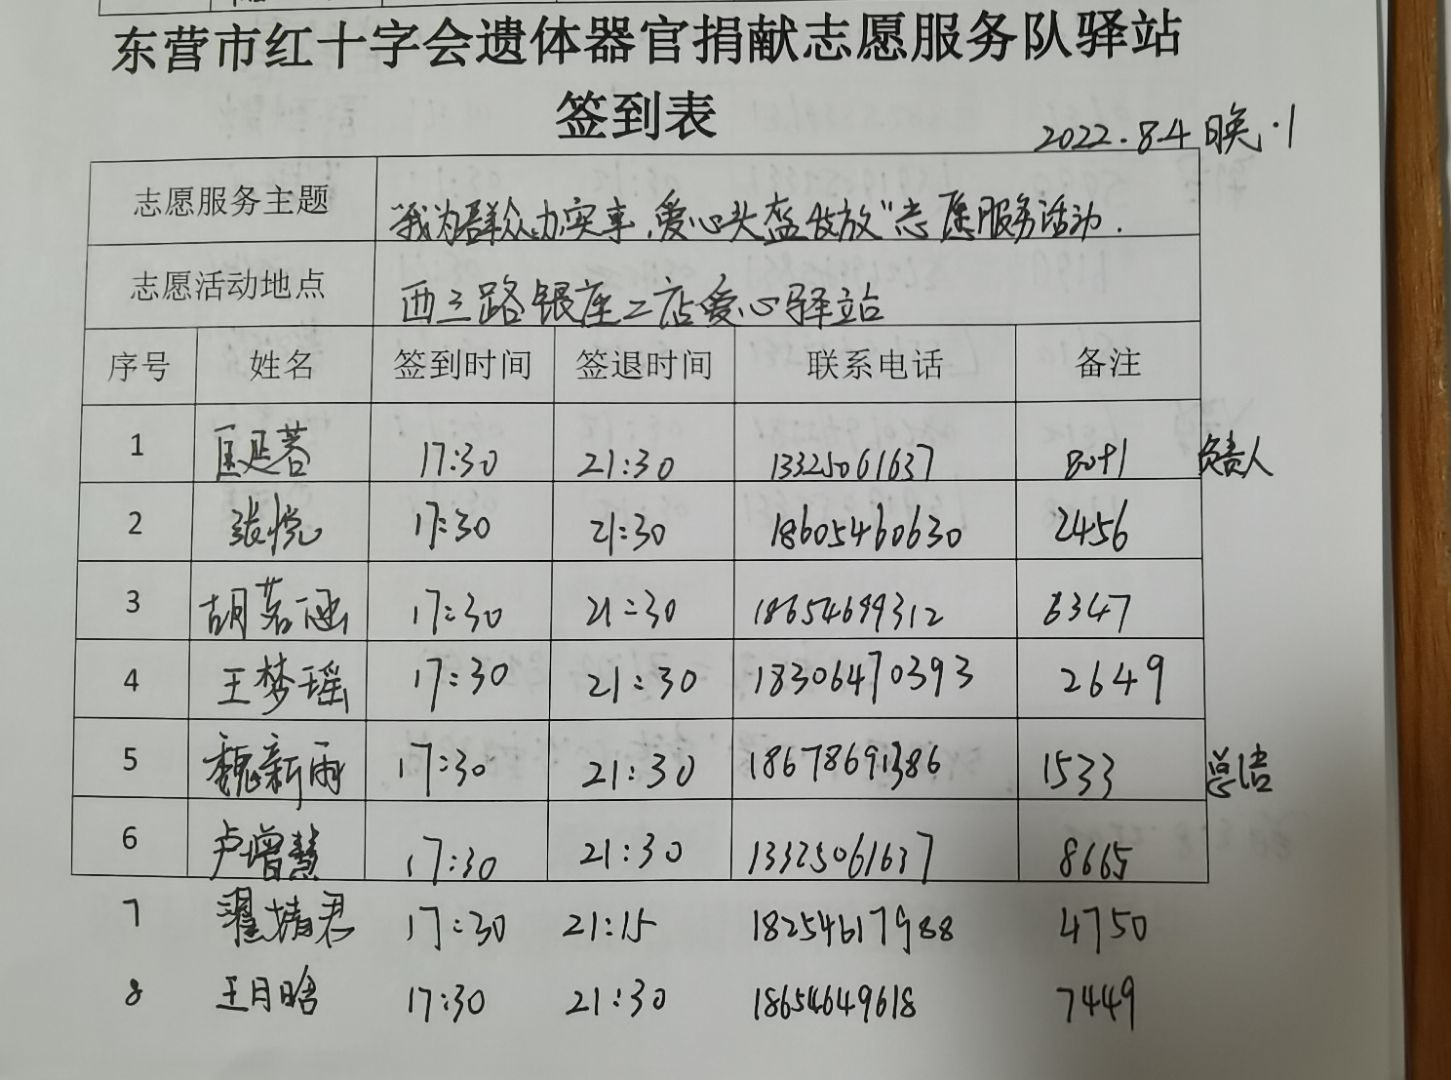 东营市红十字会遗体器官捐献志愿服务队驿站
签到表
2022.8.4 晚.1
志愿服务主题 “我为群众办实事，爱心头盔发放”志愿服务活动.
志愿活动地点 西三路银座二店爱心驿站
序号 姓名 签到时间 签退时间 联系电话 备注
1 匡延蓉 17:30 21:30 13325061637 负责人
2 张悦 17:30 21:30 18605460630 2456
3 胡茗涵 17:30 21:30 18654699312 6347
4 王梦瑶 17:30 21:30 18306470393 2649
5 魏新雨 17:30 21:30 18678691386 1533 总结
6 卢增慧 17:30 21:30 13325061637 8665
7 翟婧君 17:30 21:15 18254617988 4750
8 王月晗 17:30 21:30 18654649618 7449